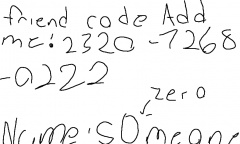 friend code Add
me: 2320 -7268
-0222
zero
Name: SOmeone